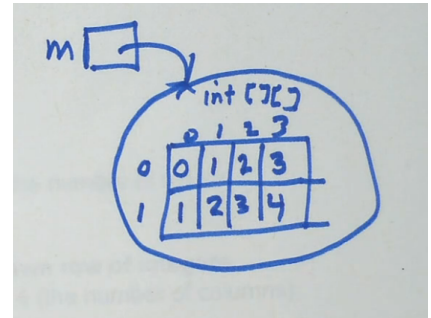 m
int [][]
0 1 2 3
0 0 1 2 3
1 1 2 3 4